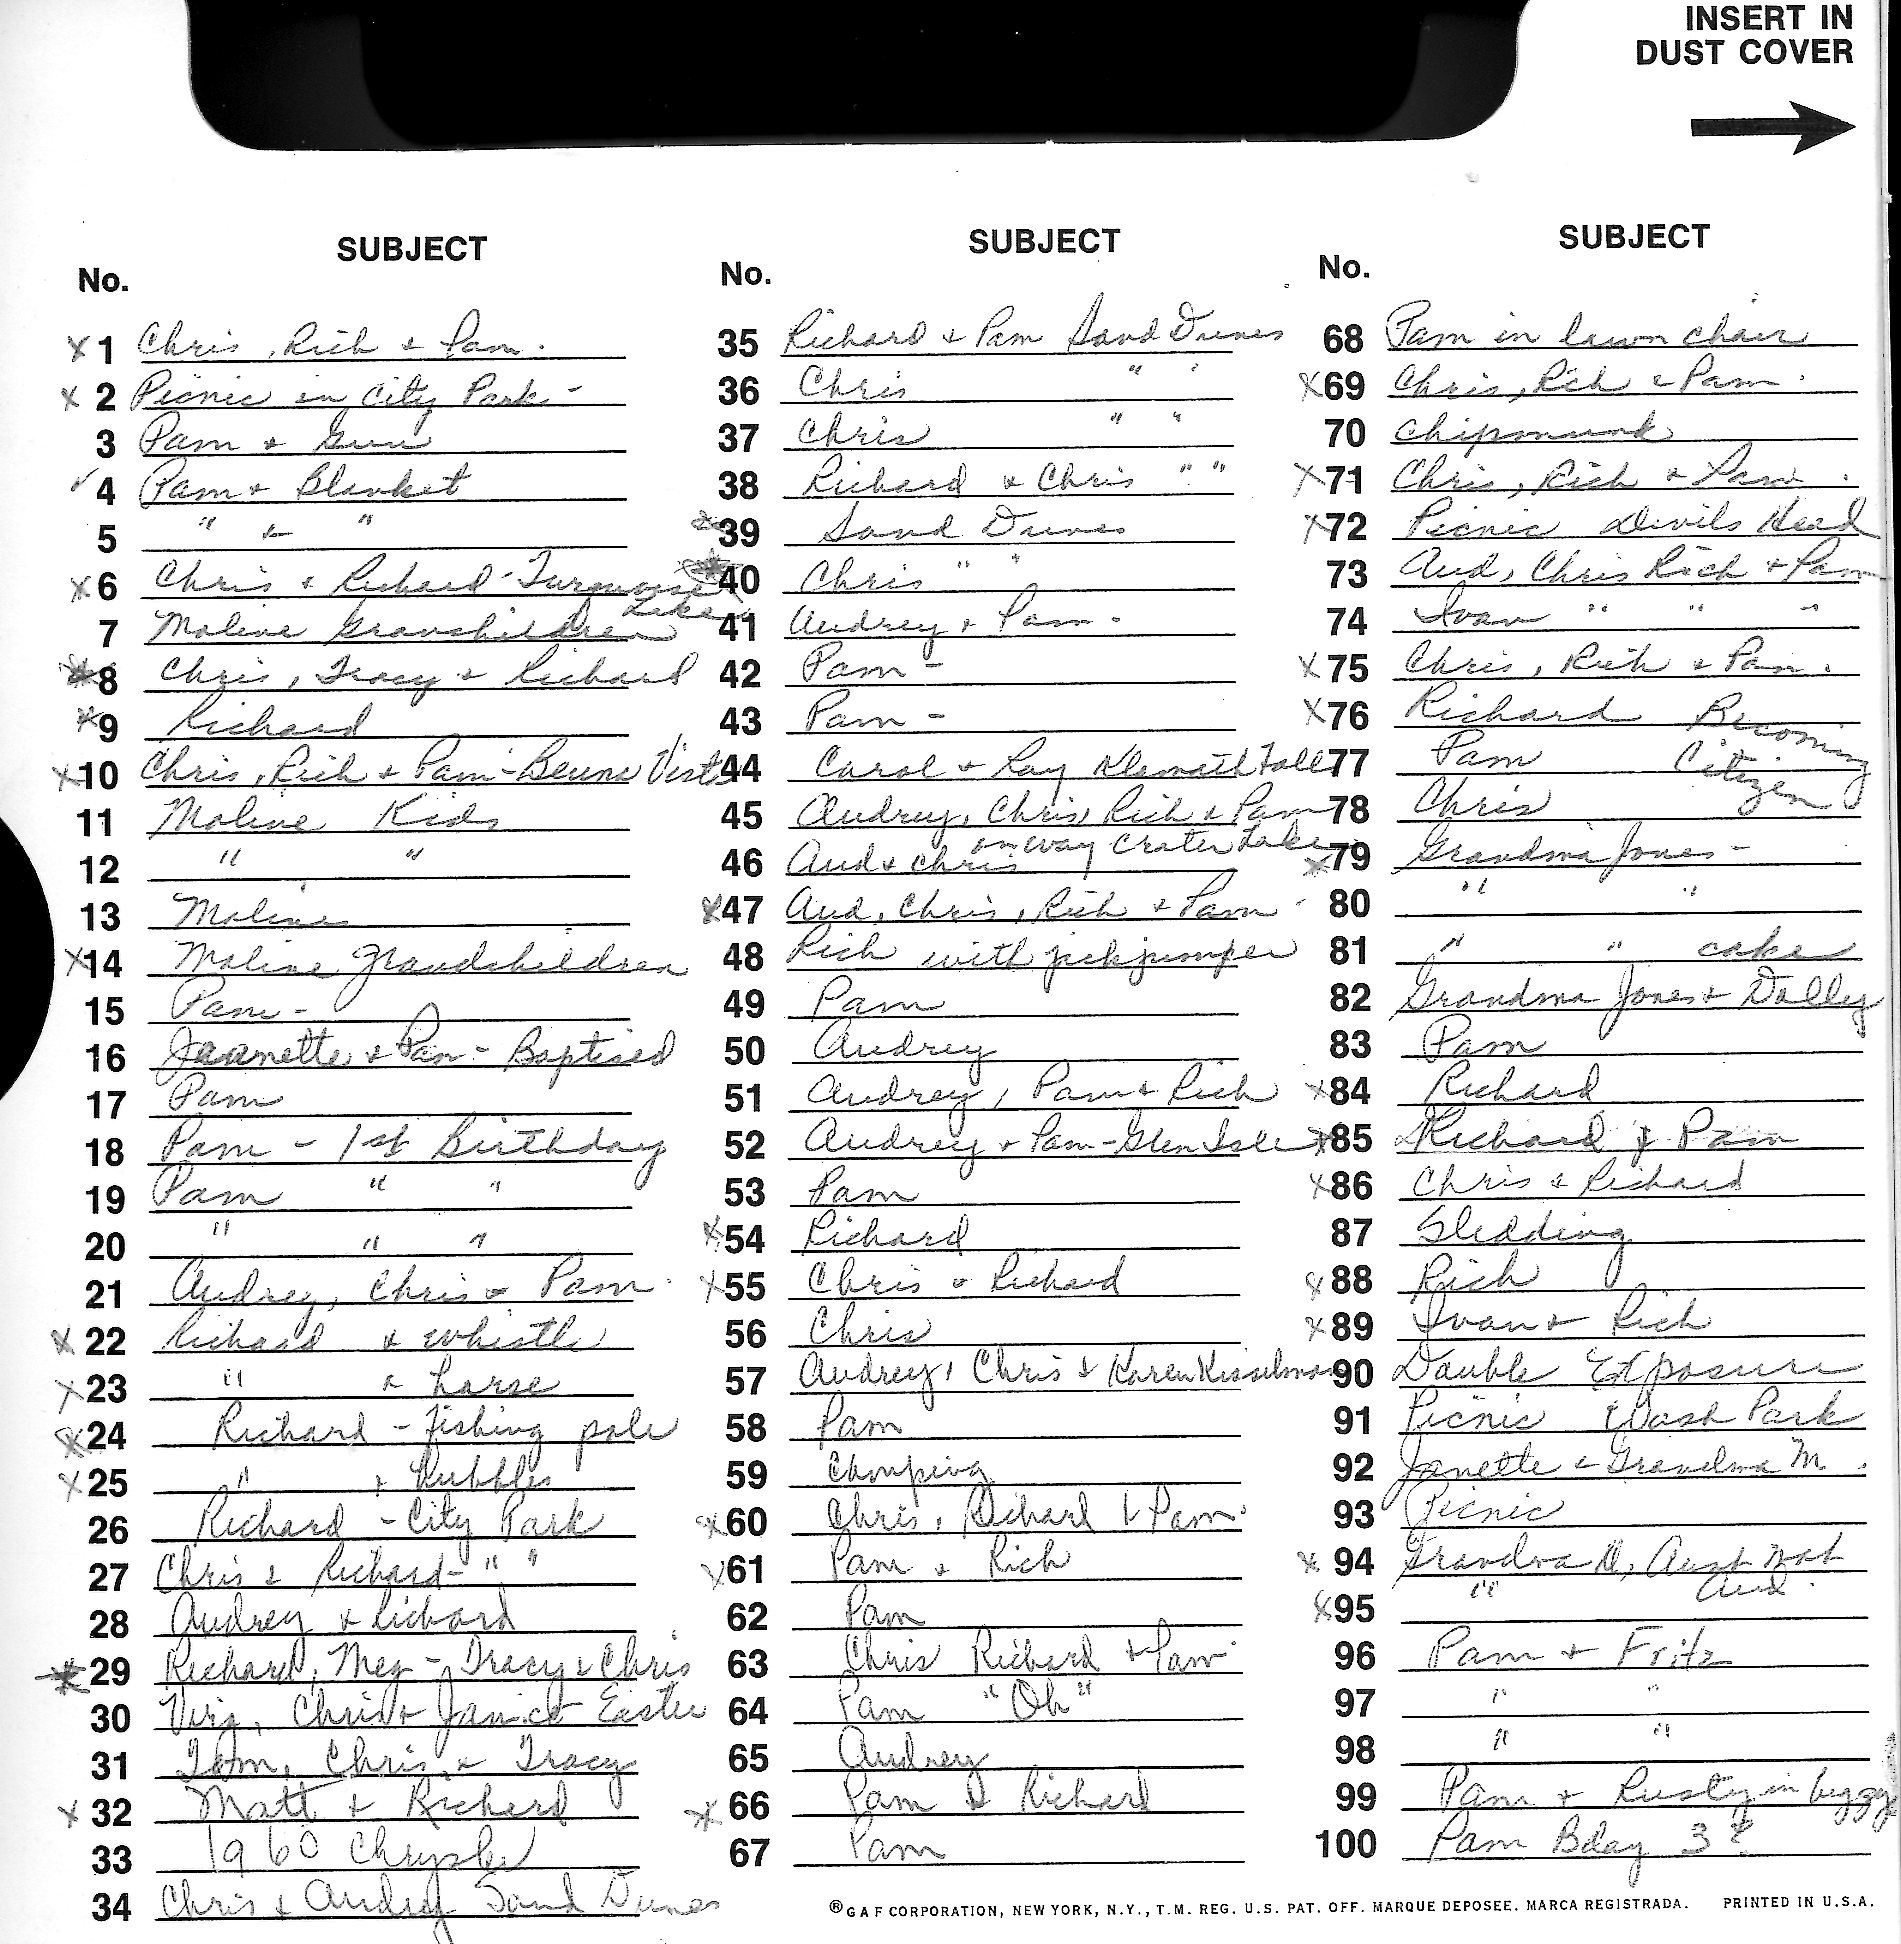 INSERT IN
DUST COVER
SUBJECT
No.
x 1 Chris, Rich + Pam.
x 2 Picnic in City Park -
3 Pam +
✓ 4 Pam + Blanket
5 " + "
x 6 Chris + Richard - Turquoise Lake
7 Moline Granchildren
x 8 Chris, Tracy + Richard
x 9 Richard
x 10 Chris, Rich + Pam - Beuna Vista
11 Moline Kids
12 " "
13 Molines
x 14 Moline Grandchildren
15 Pam -
16 Jeanette + Pam - Baptised
17 Pam
18 Pam - 1st Birthday
19 Pam " "
20 " " "
21 Audrey, Chris + Pam
x 22 Richard & whistle
x 23 " & horse
x 24 Richard - fishing pole
x 25 " + bubbles
26 Richard - City Park
27 Chris & Richard - " "
28 Audrey & Richard
x 29 Richard, Meg - Tracy & Chris
30 Virg, Chris + Janice Easter
31 Tom, Chris, + Tracy
x 32 Matt + Richard
33 1960 Chrysler
34 Chris & Audrey Sand Dunes
SUBJECT
No.
35 Richard + Pam Sand Dunes
36 Chris " "
37 Chris " "
38 Richard & Chris " "
x 39 Sand Dunes
x 40 Chris " "
41 Audrey + Pam.
42 Pam -
43 Pam -
44 Carol + Ray Klamath Falls
45 Audrey, Chris, Rich + Pam
on way Crater Lake
46 Aud + Chris
x 47 Aud, Chris, Rich + Pam
48 Rich with
49 Pam
50 Audrey
51 Audrey, Pam + Rich
52 Audrey + Pam - Glen Isle
53 Pam
x 54 Richard
x 55 Chris & Richard
56 Chris
57 Audrey, Chris & Karen Kisselman
58 Pam
59 Camping
x 60 Chris, Richard & Pam.
x 61 Pam & Rich
62 Pam
63 Chris Richard + Pam
64 Pam "Oh"
65 Audrey
x 66 Pam & Richard
67 Pam
SUBJECT
No.
68 Pam in lawn chair
x 69 Chris, Rich & Pam.
70 Chipmunk
x 71 Chris, Rich + Pam.
x 72 Picnic Devils Head
73 Aud, Chris Rich + Pam
74 Ivan " " "
x 75 Chris, Rich + Pam.
x 76 Richard Becoming
77 Pam Citizen
78 Chris
x 79 Grandma Jones -
80 " "
81 " " cake
82 Grandma Jones + Dolley
83 Pam
x 84 Richard
x 85 Richard & Pam
x 86 Chris & Richard
87 Sledding
x 88 Rich
x 89 Ivan + Rich
90 Double Exposure
91 Picnic Wash Park
92 Janette & Grandma M.
93 Picnic
x 94 Grandma D, Aunt
x 95 " Aud.
96 Pam + Fritz
97 " "
98 " "
99 Pam + Rusty in buggy
100 Pam Bday 3?
®GAF CORPORATION, NEW YORK, N.Y., T.M. REG. U.S. PAT. OFF. MARQUE DEPOSEE. MARCA REGISTRADA. PRINTED IN U.S.A.